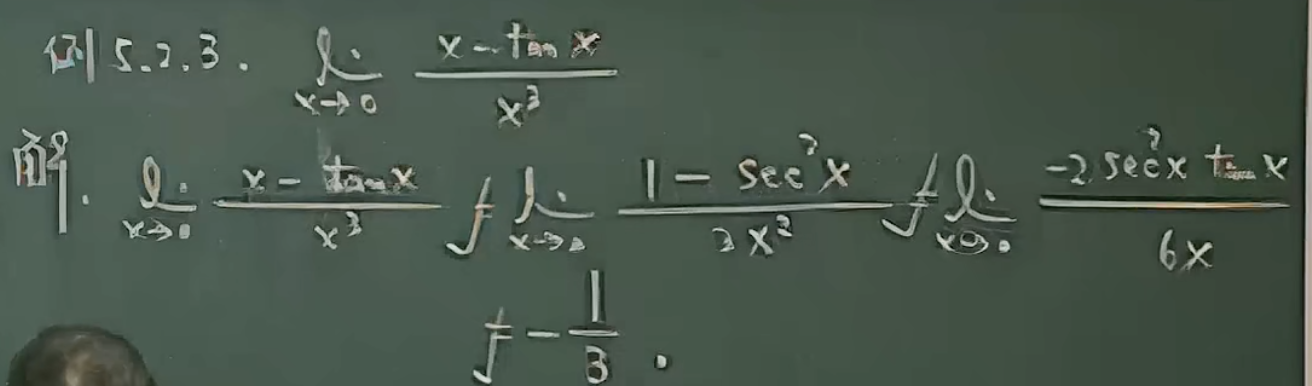 例 5.2.3. lim_{x→0} (x - tan x)/x³
解. lim_{x→0} (x - tan x)/x³ = lim_{x→0} (1 - sec²x)/3x² = lim_{x→0} (-2 sec²x tan x)/6x
= -1/3.